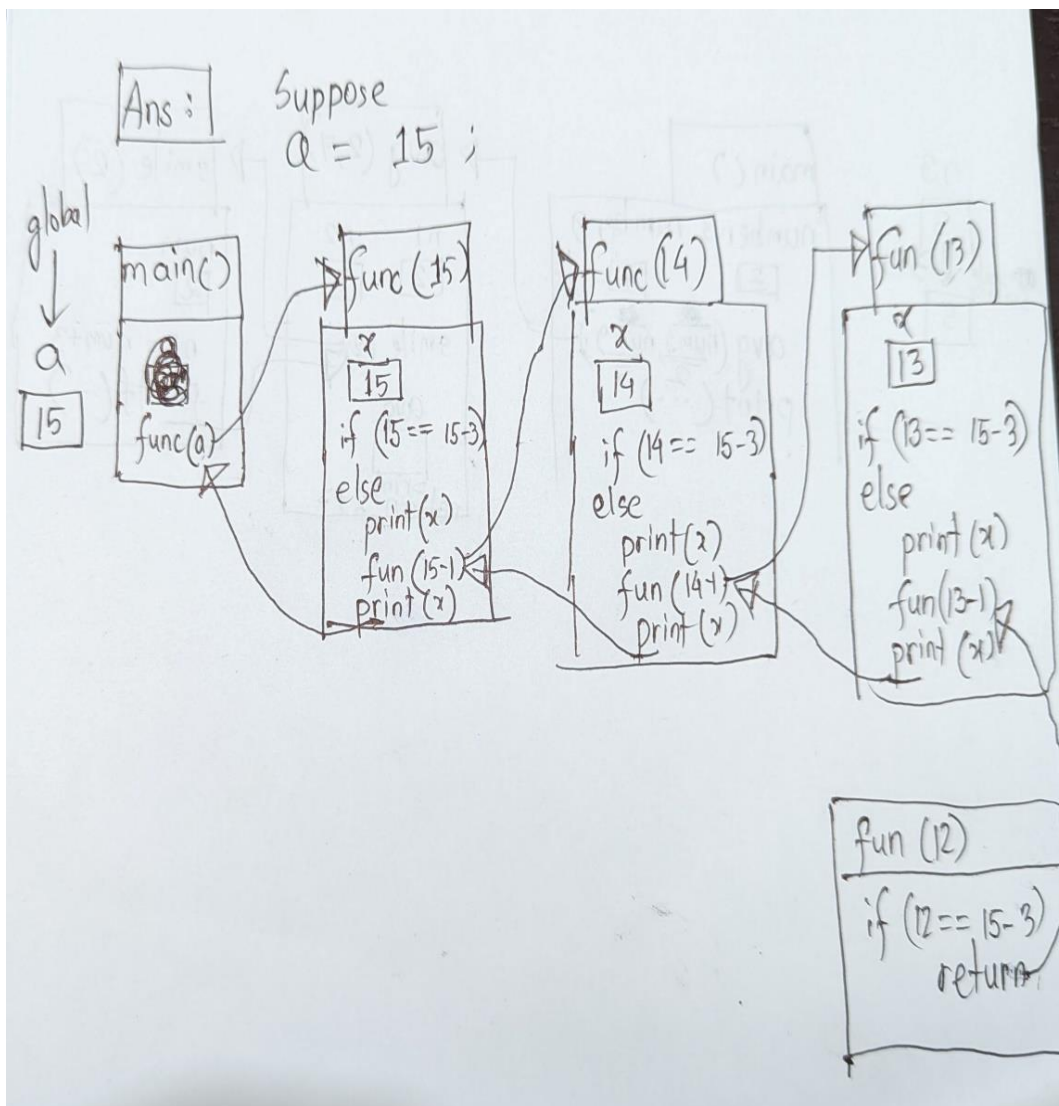 Ans:
Suppose
a = 15 ;
global
a
15
main()
func(a)
func(15)
x
15
if (15== 15-3)
else
print(x)
fun(15-1)
print(x)
func(14)
x
14
if (14== 15-3)
else
print(x)
fun(14-1)
print(x)
fun(13)
x
13
if (13== 15-3)
else
print(x)
fun(13-1)
print(x)
fun(12)
if (12== 15-3)
return